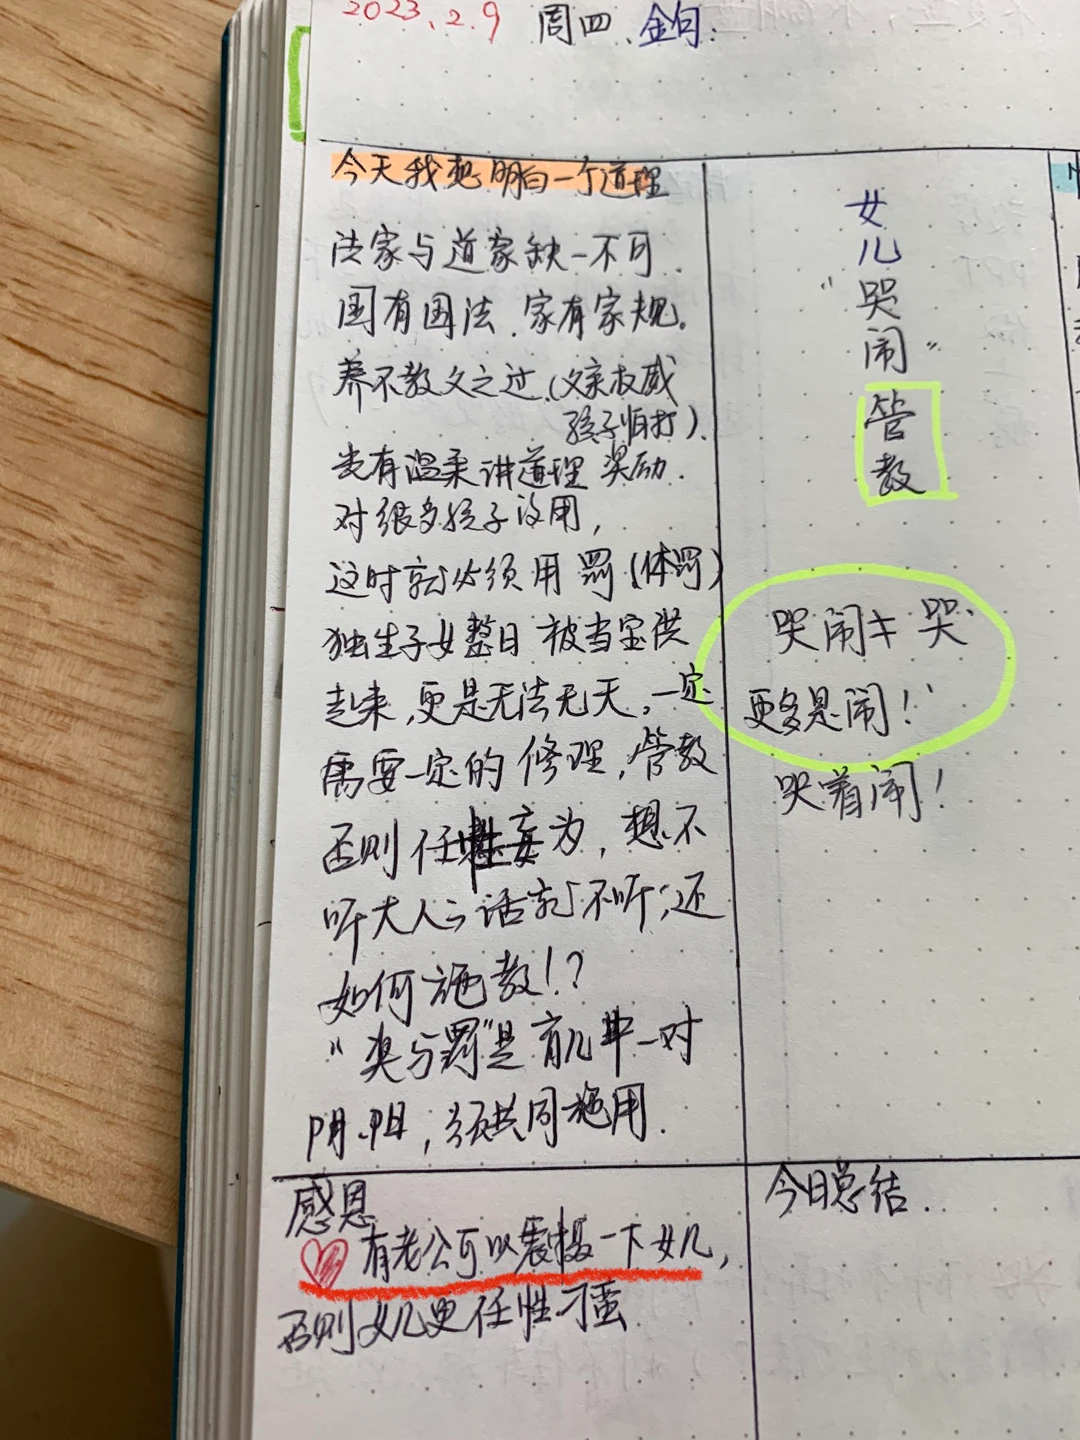 2023.2.9 周四、金句:
今天我想明白一个道理
法家与道家缺一不可.
国有国法.家有家规.
养不教父之过.(父亲权威
孩子怕打).
光有温柔讲道理 奖励.
对很多孩子没用,
这时就必须用 罚(体罚)
独生子女整日被当宝供
起来,更是无法无天,一定
需要一定的修理,管教
否则任性妄为,想不
听大人的话就不听;还
如何施教!?
"奖与罚"是育儿中一对
阴.阳,须共同施用.
感恩
有老公可以震慑一下女儿,
否则女儿更任性刁蛮
女儿
"哭闹"
管教
哭闹≠哭
更多是闹!
哭着闹!
今日总结.